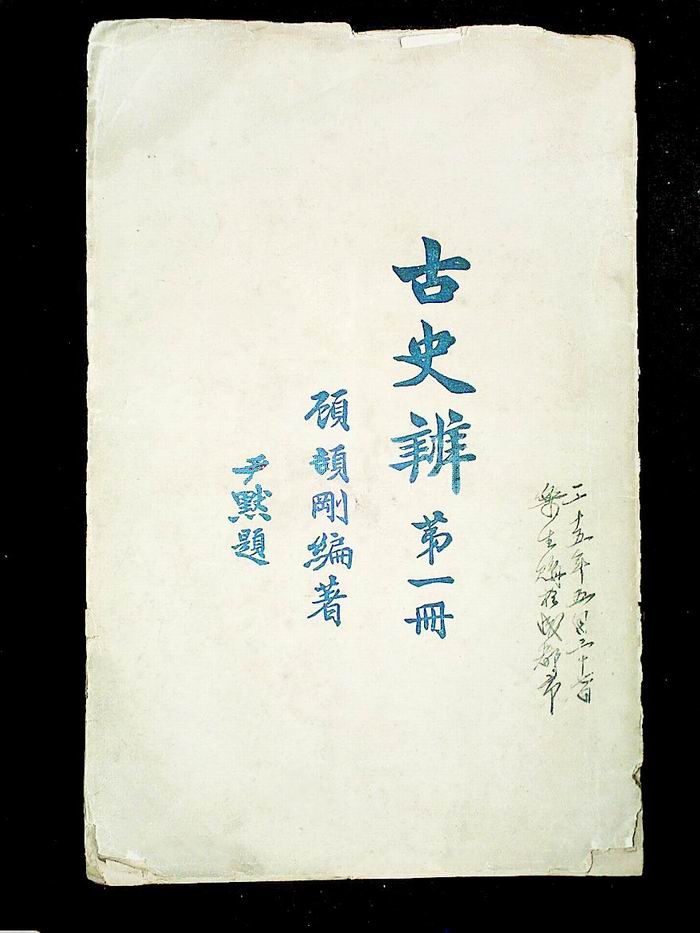 三十五年五月二十七日
樂生購於成都市
古史辨 第一冊
顧頡剛編著
尹默題